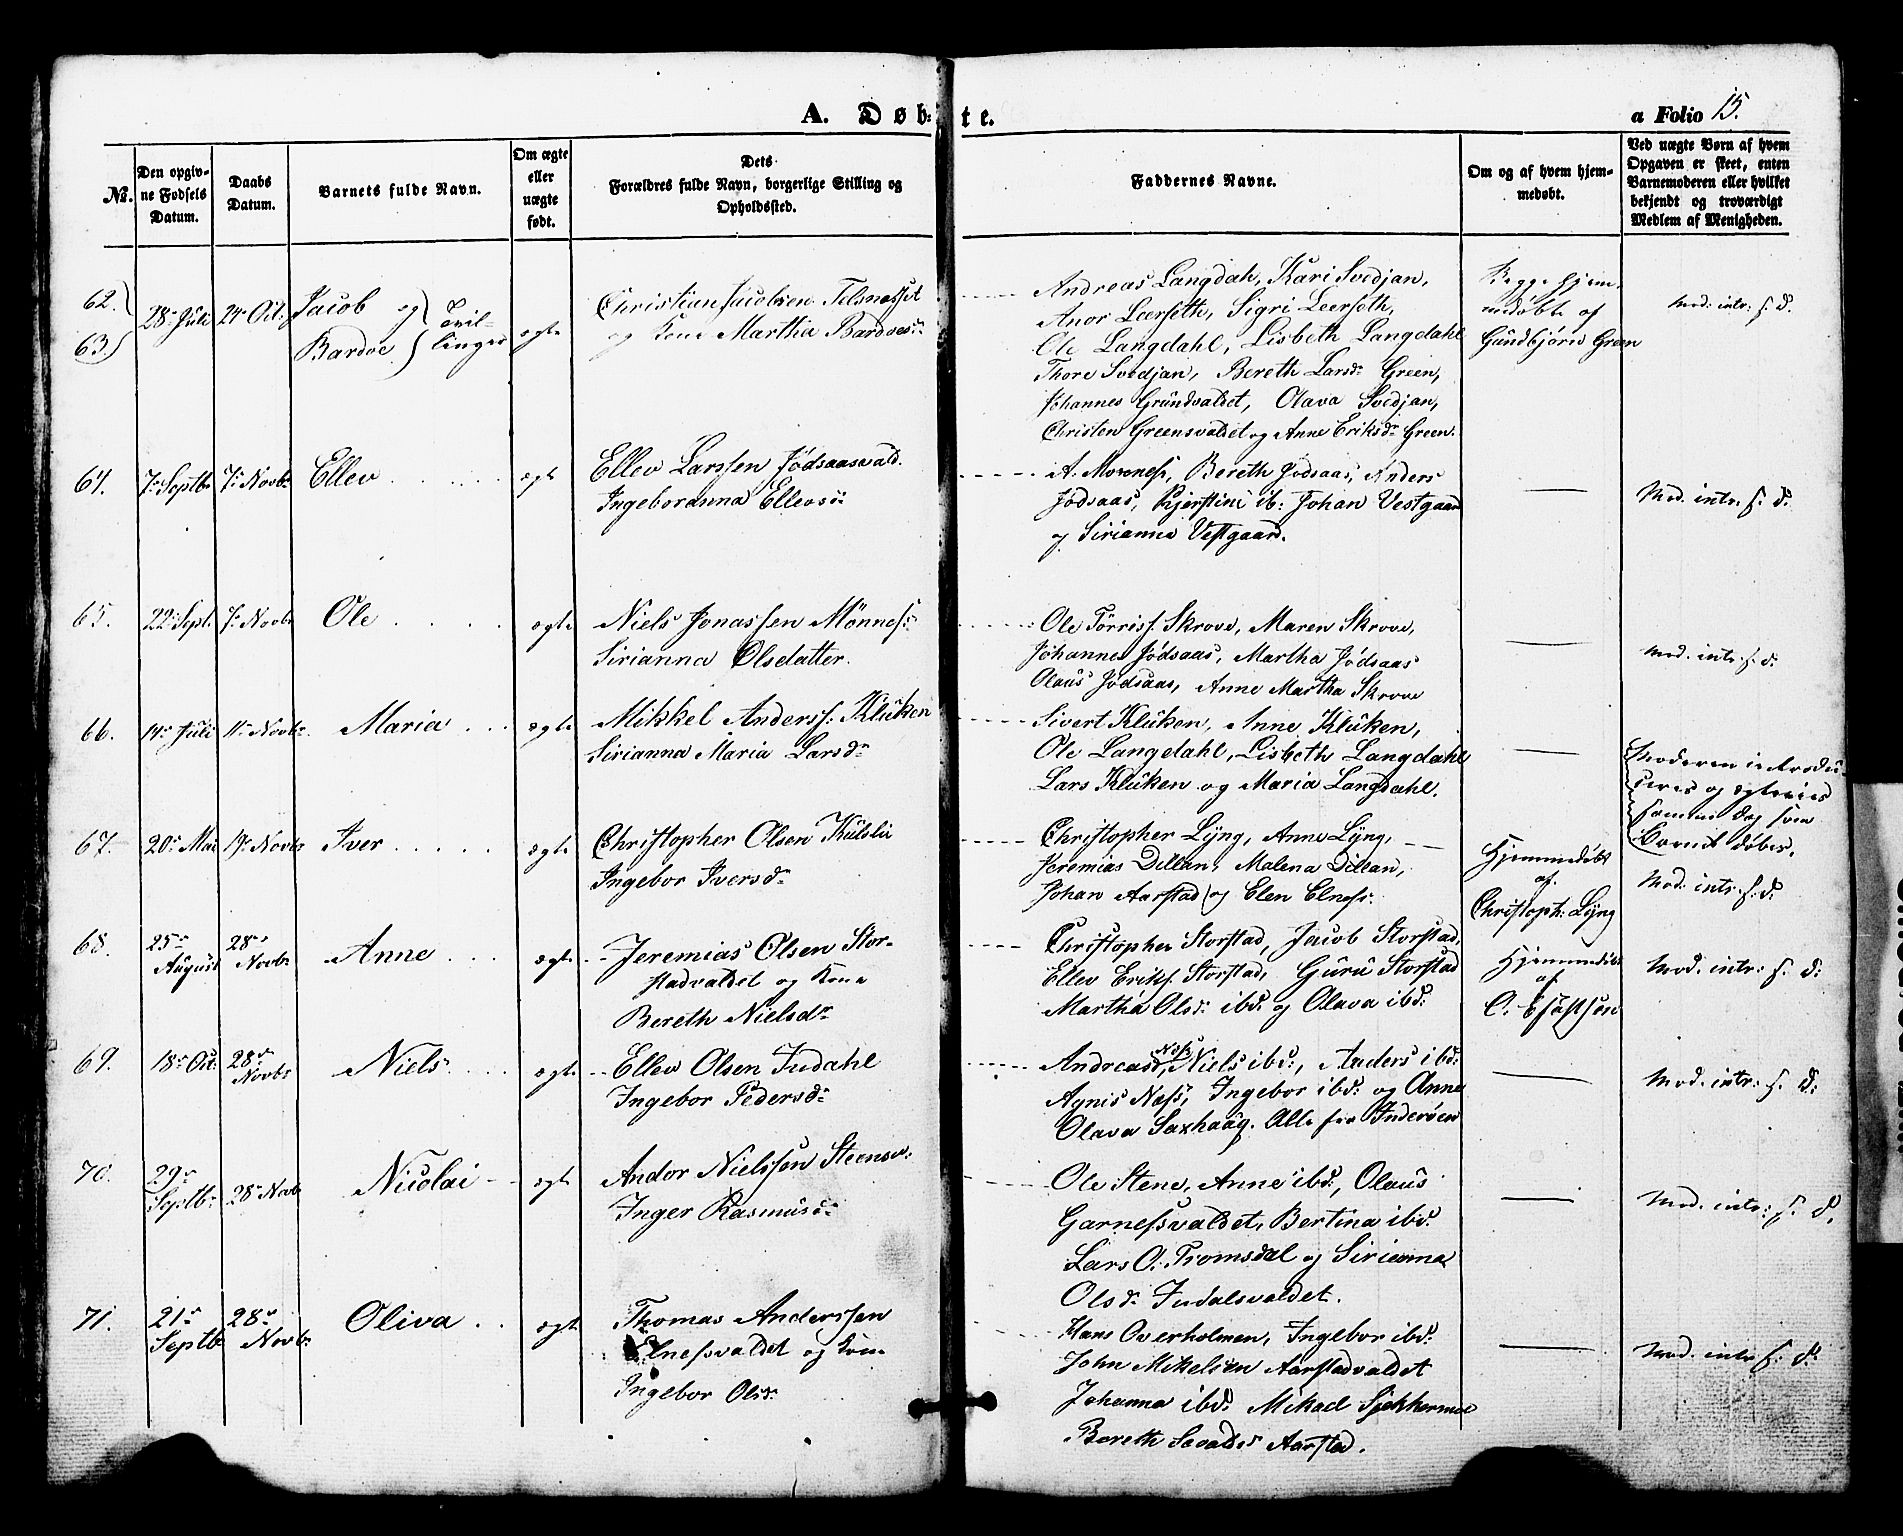 A. Døb-te.
a Folio 15.
No.
Den opgiv-
ne Fødsels
Datum.
Daabs
Datum.
Barnets fulde Navn.
Om ægte
eller
uægte
født.
Dets
Forældres fulde Navn, borgerlige Stilling og
Opholdssted.
Faddernes Navne.
Om og af hvem hjem-
medøbt.
Ved uægte Børn af hvem
Opgaven er skeet, enten
Barnemoderen eller hvilket
bekjendt og troværdigt
Medlem af Menigheden.
62.
63.
28r Juli
24r Oct.
Jacob og
Bardoe
Tvil-
linger
ægte
Christian Jacobsen Telsnesset
og Kone Martha Bardoesdr
Andreas Langdah, Kari Svedjan,
Anor Leerseth, Sigri Leerseth,
Ole Langdahl, Lisbeth Langdahl
Thore Svedjan, Bereth Larsdr Green,
Johannes Grundvaldet, Olava Svedjan,
Christen Greensvaldet og Anne Eriksdr Green.
Begge hjem-
medøbte af
Gundbjørn Green
Mod: intr: s. d.
64.
7r Septbr
7r Novbr
Ellev
ægte
Ellev Larssen Jødsaasvald.
Ingeboranna Ellevsdr
A. Monness, Bereth Jødsaas, Anders
Jødsaas, Kjerstine ib: Johan Vestgaard
og Sirianna Vestgaard.
Mod. intr. s. d.
65.
22r Sept.
7r Novbr
Ole
ægte
Niels Jonassen Mønness:
Sirianna Olsdatter.
Ole Törriss. Skrove, Maren Skrove,
Johannes Jødsaas, Martha Jødsaas
Olaus Jødsaas, Anne Martha Skrove
Mod. intr. s. d.
66.
14r Juli
11r Novbr
Maria
ægte
Mikkel Anderss: Klüken
Sirianna Maria Larsdr
Sivert Klüken, Anne Klüken,
Ole Langedahl, Lisbeth Langdahl
Lars Klüken og Maria Langdahl.
Moderen introdu-
ceres og ægtevies
samme Dag som
Barnet døbes.
67.
20r Mai
19r Novbr
Iver
ægte
Christopher Olsen Külslü
Ingebor Iversdr
Christopher Lÿng, Anne Lÿng,
Jeremias Dillan, Malena Dillan,
Johan Aarstad og Elen Elness.
Hjemmedøbt
af
Christoph: Lÿng
Mod: intr: s. d.
68.
25r
August
28r
Novbr
Anne
ægte
Jeremias Olsen Stor-
stadvaldet og Kone
Bereth Nielsdr
Christopher Storstad, Jacob Storstad,
Ellev Eriks. Storstad, Guru Storstad
Martha Olsdr ibd. og Olava ibd:
Hjemmedøbt
af
Mod. intr: s. d.
69.
18r Oct.
28r
Novbr
Niels
ægte
Ellev Olsen Indahl
Ingebor Pedersdr
Andreas Næss, Niels ibd:, Anders ibd:
Agnis Næss, Ingebor ibd: og Anne
Olava Saxhaüg. Alle fra Inderøen
Mod. intr: s. d.
70.
29r
Septbr
28r Novb
Nicolai
ægt
Andor Nielssen Steensv:
Inger Rasmusdr
Ole Stene, Anne ibd., Olaüs
Garnessvaldet, Bertina ibd.
Lars O. Tromsdal og Sirianna
Olsdr Indalsvaldet.
Mod. intr: s. d.
71.
21r
Septbr
28r
Novbr
Oliva
ægte
Thomas Anderssen
Elnessvaldet og Kone
Ingebor Olsdr
Hans Overholmen, Ingebor ibd:
John Mikelsen Aarstadvaldet
Johanna ibd: Mikael
Bereth Aarstad.
Mod. intr s. d.